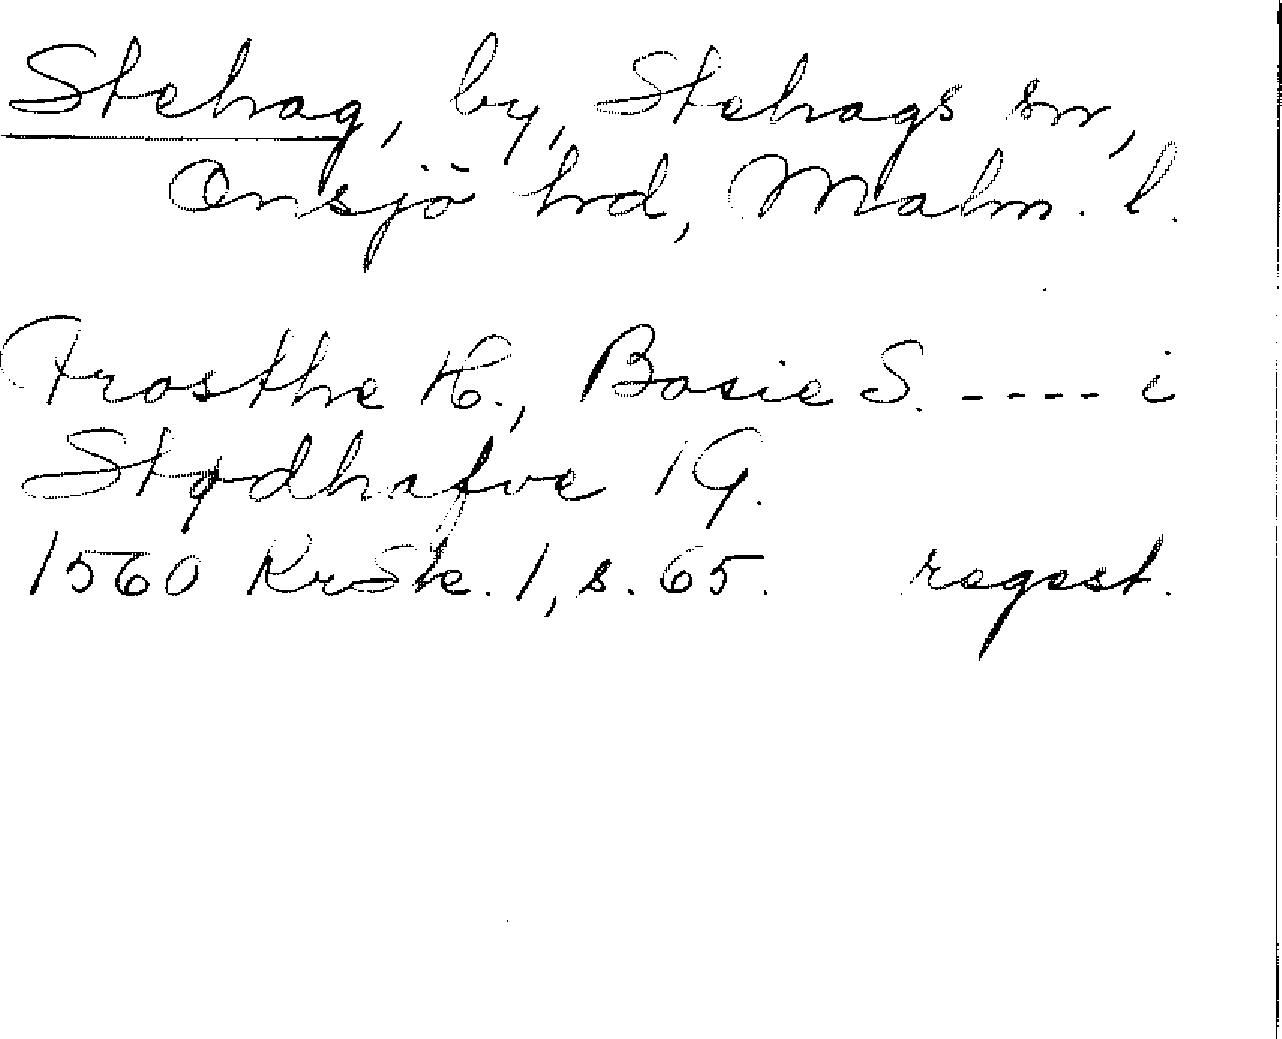 Stehag, by, Stehags sn,
Onsjö hd, Malm. l.
Frosthe H., Bosie S. ---- i
Stødhafve 1 G.
1560 KrSke. 1, s. 65. regest.